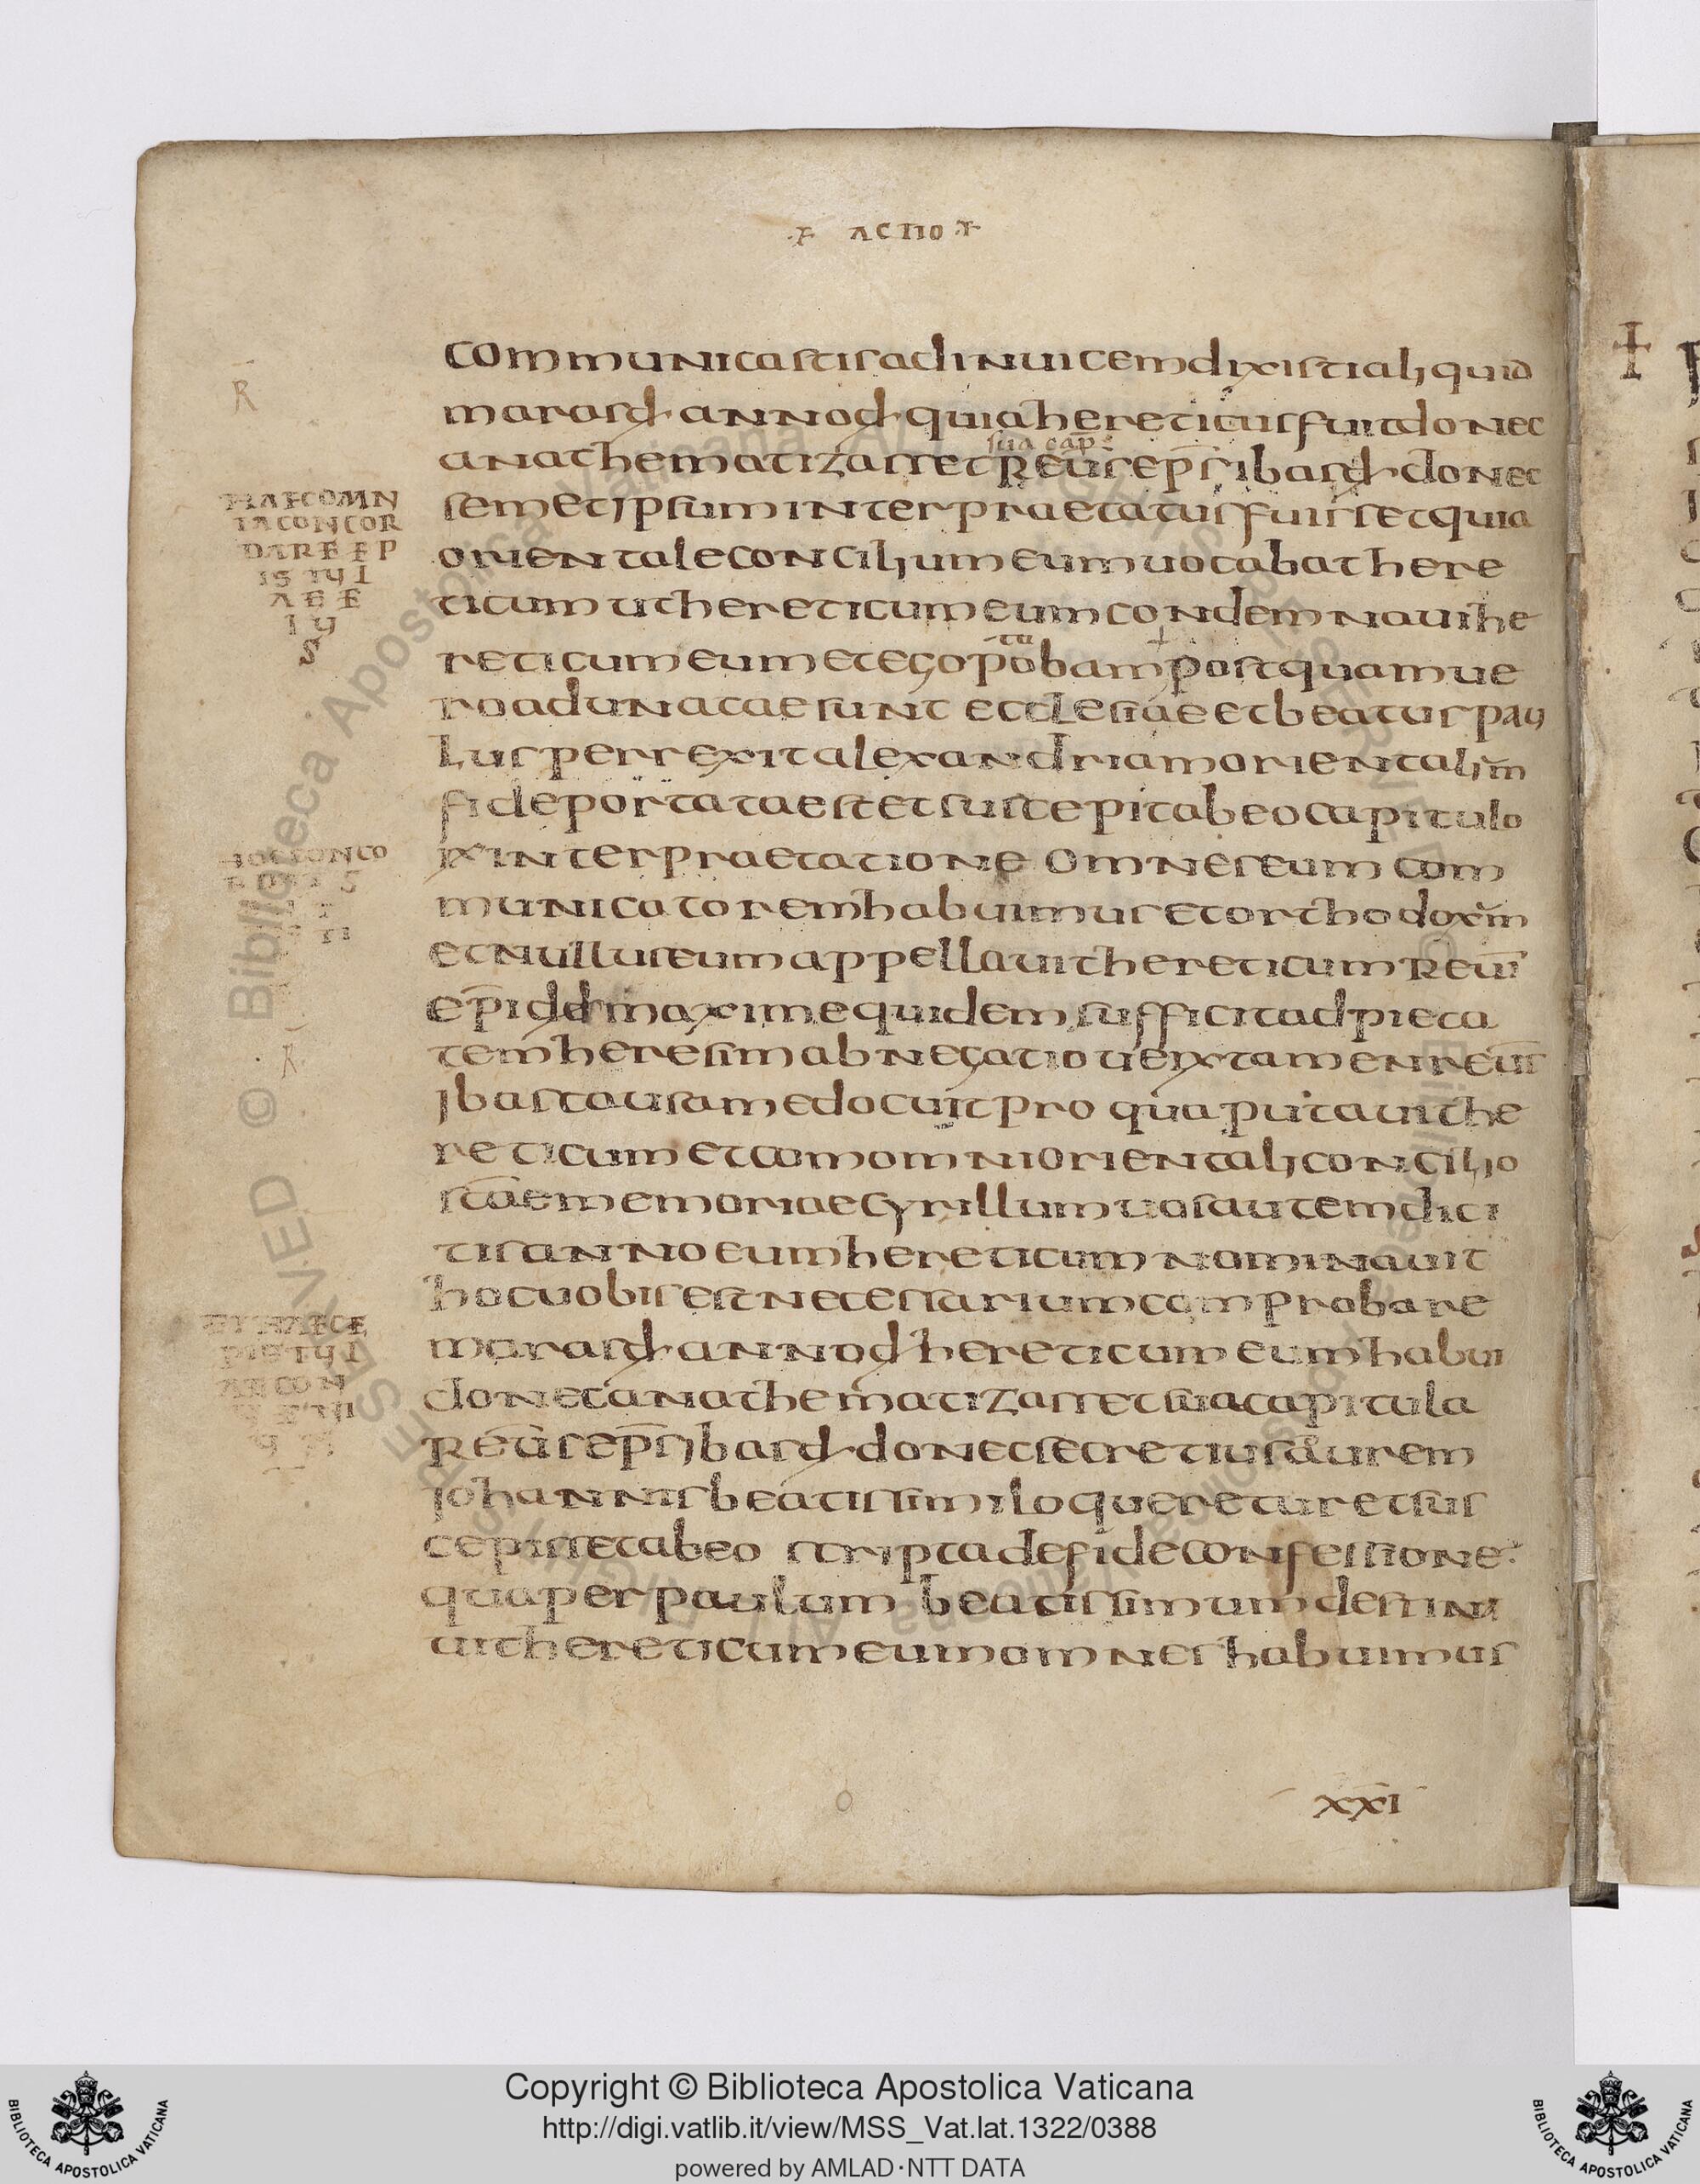 ACTIO
communicastis ad inuicem dixisti aliquid
maras d annod quia hereticus fuit donec
sua cap
anathematizasset Reus eps ibas d donec
semetipsum interpraetatus fuisset quia
orientale concilium eum uocabat here
ticum ut hereticum eum condemnaui he
ta
reticum eum et ego pobam postquam ue
ro adunatae sunt ecclesiae et beatus pau
lus perrexit alexandriam orientalim
fide portata est et suscepit ab eo capitulo
ix interpraetatione omnes eum com
municatorem habuimus et orthodoxm
et nullus eum appellauit hereticum Reui
epi dd maxime quidem sufficit ad pieta
tem heresim abnegatio uex tamen reus
ibas causam edocuit pro qua putauit he
reticum et cum omni orientali concilio
scae memoriae cyrillum uos autem dici
tis annon eum hereticum nominauit
hoc uobis est necessarium comprobare
maras d annod hereticum eum habui
donec anathematizasset sua capitula
Reus eps ibas d donec secretius aurem
iohannis beatissimi loqueretur et sus
cepisset ab eo scripta de fide confessione
qua per paulum beatissimum destina
uit hereticum eum omnes habuimus
XXI
R
HAEC OMN
IA CONCOR
DARE EP
IS TYL
A E E
I Y
S
R
Copyright © Biblioteca Apostolica Vaticana
http://digi.vatlib.it/view/MSS_Vat.lat.1322/0388
powered by AMLAD·NTT DATA
BIBLIOTECA APOSTOLICA VATICANA
BIBLIOTECA APOSTOLICA VATICANA